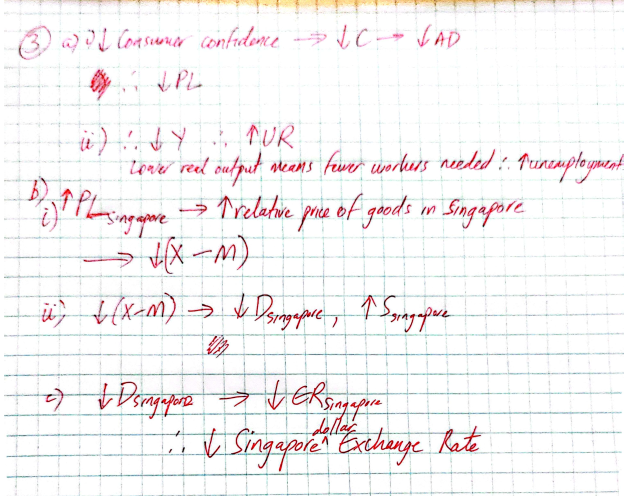 ③ a) i) ↓ Consumer confidence → ↓ C → ↓ AD
∴ ↓ PL
ii) ∴ ↓ Y ∴ ↑ UR
Lower real output means fewer workers needed ∴ ↑ unemployment
b)
i) ↑ PL Singapore → ↑ relative price of goods in Singapore
→ ↓ (X - M)
ii) ↓ (X-M) → ↓ D Singapore, ↑ S Singapore
c) ↓ D Singapore → ↓ ER Singapore
∴ ↓ Singapore ^ dollar Exchange Rate